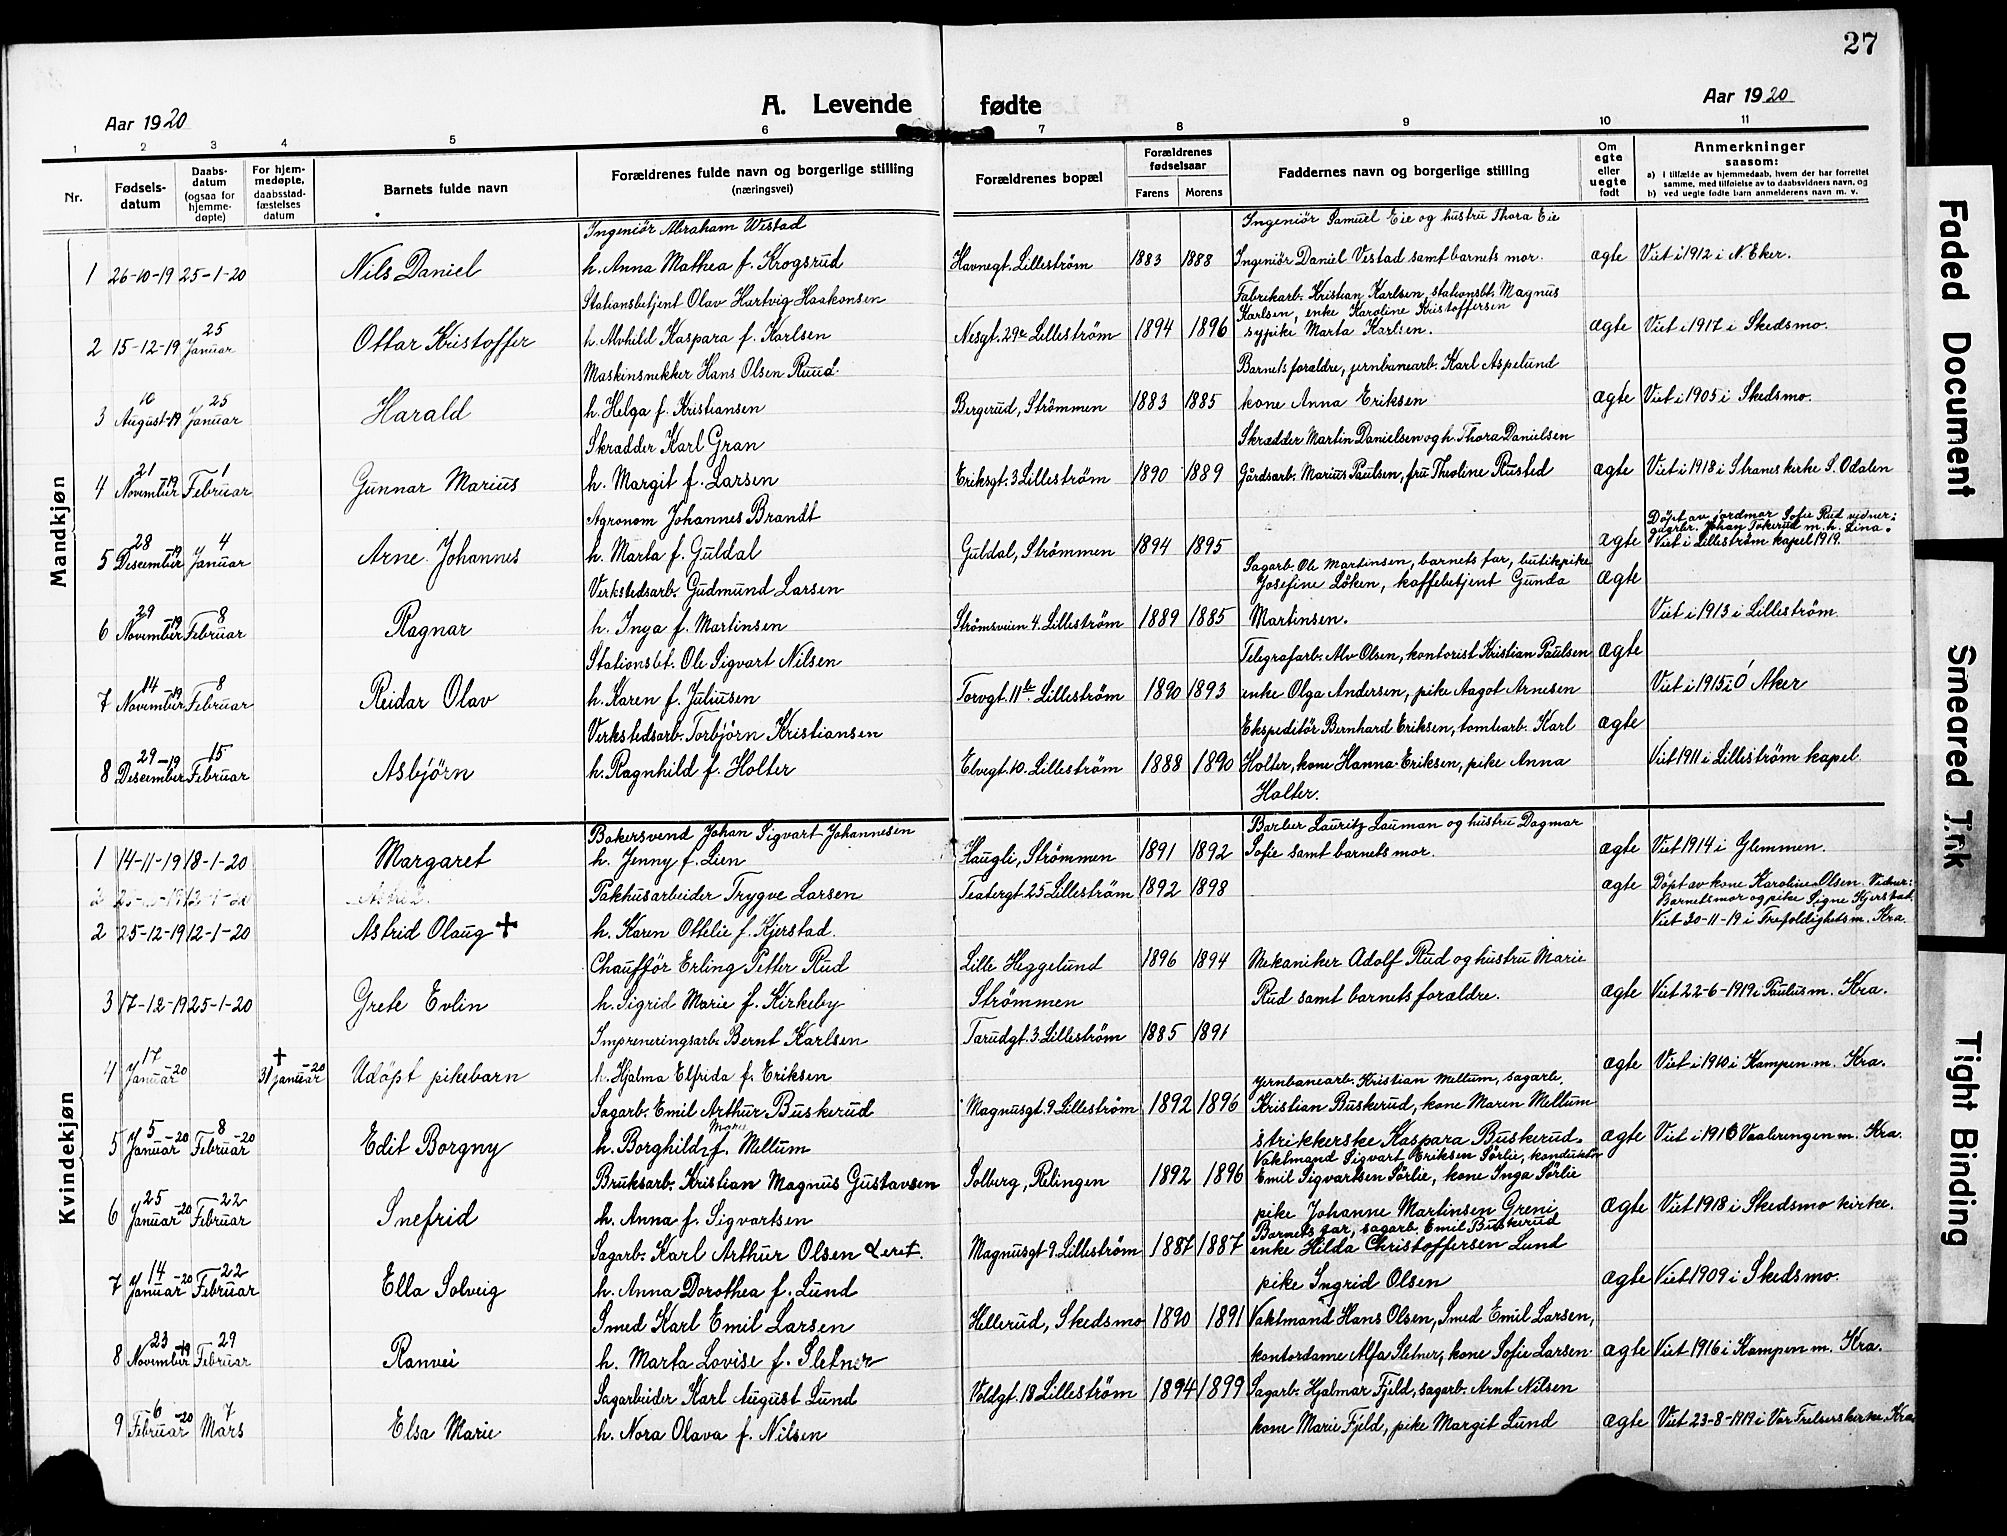 27
A. Levende fødte
Aar 1920
Aar 1920
1 2 3 4 5 6 7 8 9 10 11
Nr.
Fødsels-datum
Daabs-datum (ogsaa for hjemme-døpte)
For hjem-medøpte, daabsstad-fæstelses datum
Barnets fulde navn
Forældrenes fulde navn og borgerlige stilling (næringsvei)
Forældrenes bopæl
Forældrenes fødselsaar
Farens Morens
Faddernes navn og borgerlige stilling
Om egte eller uegte født
Anmerkninger
saasom:
a) I tilfælde av hjemmedaab, hvem der har forrettet samme, med tilføielse av to daabsvidners navn, og
b) ved uegte fødte barn anmelderens navn m. v.
Mandkjøn
Ingeniör Abraham Westad Ingeniör Samuel Eie og hustru Thora Eie
1 26-10-19 25-1-20 Nils Daniel h. Anna Mathea f. Krogsrud Havnegt. Lilleström 1883 1888 Ingeniör Daniel Vestad samt barnets mor. ægte Viet i 1912 i N. Eker.
Stationsbetjent Olav Hartvig Haakonsen Fabrikarb. Kristian Karlsen, stationsbt. Magnus
Karlsen, enke Karoline Kristoffersen
2 15-12-19 25 Januar Ottar Kristoffer h. Alvhild Kaspara f. Karlsen Nesgt. 29a Lilleström 1894 1896 sypike Marta Karlsen. ægte Viet i 1917 i Skedsmo.
Maskinsnekker Hans Olsen Ruud Barnets foraldre, jernbanearb. Karl Aspelund
3 10 August-19 25 Januar Harald h. Helga f. Kristiansen Bergerud, Strömmen 1883 1885 kone Anna Eriksen ægte Viet i 1905 i Skedsmo.
Skradder Karl Gran Skrædder Martin Danielsen og h. Thora Danielsen
4 21 November-19 1 Februar Gunnar Marius h. Margit f. Larsen Eriksgt. 3 Lilleström 1890 1889 Gårdsarb. Marius Paulsen, fru Theoline Rusted ægte Viet i 1918 i Stranes kirke S. Odalen
Agronom Johannes Brandt Döpt av jordmor Sofie Rud vidner:
gaarbr. Johan Tokerud m. h. Lina.
5 28 Desember-19 4 Januar Arne Johannes h. Marta f. Guldal Guldal, Strömmen 1894 1895 ægte Viet i Lilleström kapel 1919.
Verkstedsarb. Gudmund Larsen Sagarb. Ole Martinsen, barnets far, butikpike
Josefine Löken, kaffebetjent Gunda ægte
6 29 November-19 8 Februar Ragnar h. Inga f. Martinsen Strömsveien 4. Lilleström 1889 1885 Martinsen. Viet i 1913 i Lilleström.
Stationsbt. Ole Sigvart Nilsen Telegrafarb. Alv Olsen, kontorist Kristian Paulsen ægte
7 14 November-19 8 Februar Reidar Olav h. Karen f. Juliusen Torvgt. 11b Lilleström 1890 1893 enke Olga Andersen, pike Aagot Arnesen Viet i 1915 i Ö Aker
Verkstedsarb. Torbjörn Kristiansen Ekspeditör Bernhard Eriksen, tomtearb. Karl ægte
8 29 Desember-19 15 Februar Asbjörn h. Ragnhild f. Holter Elvegt. 10. Lilleström 1888 1890 Holter, kone Hanna Eriksen, pike Anna Viet 1911 i Lilleström kapel
Holter.
Kvindekjøn
Bakersvend Johan Sigvart Johannesen Barber Lauritz Lauman og hustru Dagmar
1 14-11-19 18-1-20 Margaret h. Jenny f. Lien Haugli, Strömmen 1891 1892 Sofie samt barnets mor. ægte Viet 1914 i Glemmen.
Pakhusarbeider Trygve Larsen Teatergt 25 Lilleström 1892 1898 ægte Döpt av kone Karoline Olsen. Vidner:
Barnets mor og pike Signe Kjerstad.
2 25-12-19 12-1-20 Astrid Olaug + h. Karen Ottelie f. Kjerstad. Viet 20-11-19 i Trefoldighetsm. Kra.
Chaufför Erling Petter Rud Lille Heggelund 1896 1894 Mekaniker Adolf Rud og hustru Marie
3 17-12-19 25-1-20 Grete Evlin h. Sigrid Marie f. Kirkeby Strömmen Rud samt barnets foraldre. ægte Viet 22-6-1919 i Paulus m. Kra.
Impreneringsarb. Bernt Karlsen Tarudgt. 3. Lilleström 1885 1891
4 17 Januar-20 + 31 januar-20 Udöpt pikebarn h. Hjalma Elfrida f. Eriksen ægte Viet i 1910 i Kampen m. Kra.
Jernbanearb. Kristian Mellum, sagarb.
Sagarb. Emil Arthur Buskerud Magnusgt. 9 Lilleström 1892 1896 Kristian Buskerud, kone Maren Mellum
5 5 Januar-20 8 Februar-20 Edit Borgny h. Borghild Marie f. Mellum strikkerske Kaspara Buskerud. ægte Viet i 1916 Vaalerengen m. Kra.
Vaktmand Sigvart Eriksen Sörlie, konduktör
Bruksarb. Kristian Magnus Gustavsen Solberg, Relingen 1892 1896 Emil Sigvartsen Sörlie, kone Inga Sörlie
6 25 Januar-20 22 Februar Snefrid h. Anna f. Sigvartsen pike Johanne Martinsen Greni ægte Viet i 1918 i Skedsmo kirke.
Barnets far, sagarb. Emil Buskerud
Sagarb. Karl Arthur Olsen Magnusgt 9. Lilleström 1887 1887 enke Hilda Christoffersen Lund
7 14 Januar-20 22 Februar Ella Solveig h. Anna Dorothea f. Lund pike Ingrid Olsen ægte Viet 1909 i Skedsmo.
Smed Karl Emil Larsen Hellerud, Skedsmo 1890 1891 Vaktmand Hans Olsen, Smed Emil Larsen,
8 23 November-19 29 Februar Ranvei h. Marta Lovise f. Sletner kontordame Alfa Sletner, kone Sofie Larsen. ægte Viet 1916 i Kampen m. Kra.
Sagarbeider Karl August Lund Voldgt. 18 Lilleström 1894 1899 Sagarb. Hjalmar Fjeld, sagarb. Arnt Nilsen
9 6 Februar-20 7 Mars Elsa Marie h. Nora Olava f. Nilsen kone Marie Fjeld, pike Margit Lund ægte Viet 23-8-1919 i Vor Frelsers kirke. Kra
Faded Document
Smeared Ink
Tight Binding